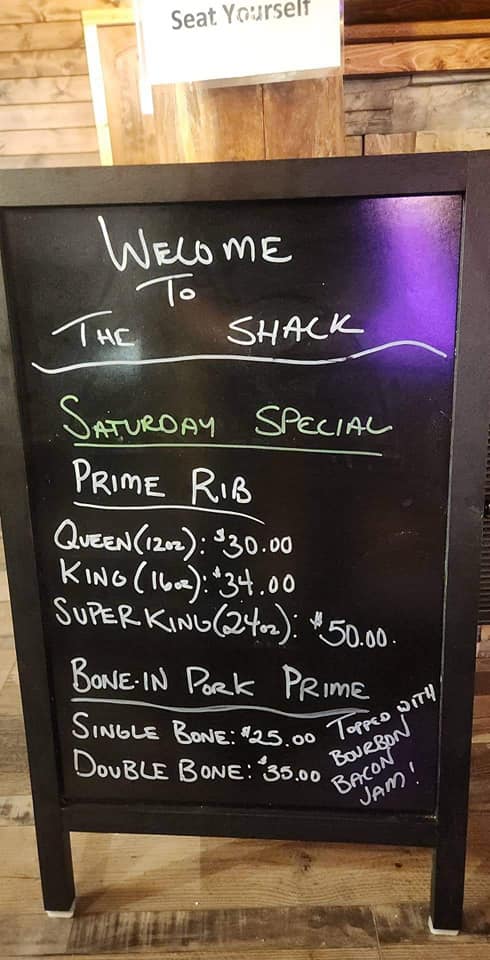 Seat Yourself
WELCOME
TO
THE SHACK
SATURDAY SPECIAL
PRIME RIB
QUEEN (12oz): $30.00
KING (16oz): $34.00
SUPER KING (24oz): $50.00.
BONE-IN PORK PRIME
SINGLE BONE: $25.00
DOUBLE BONE: $35.00
TOPPED WITH
BOURBON
BACON
JAM!